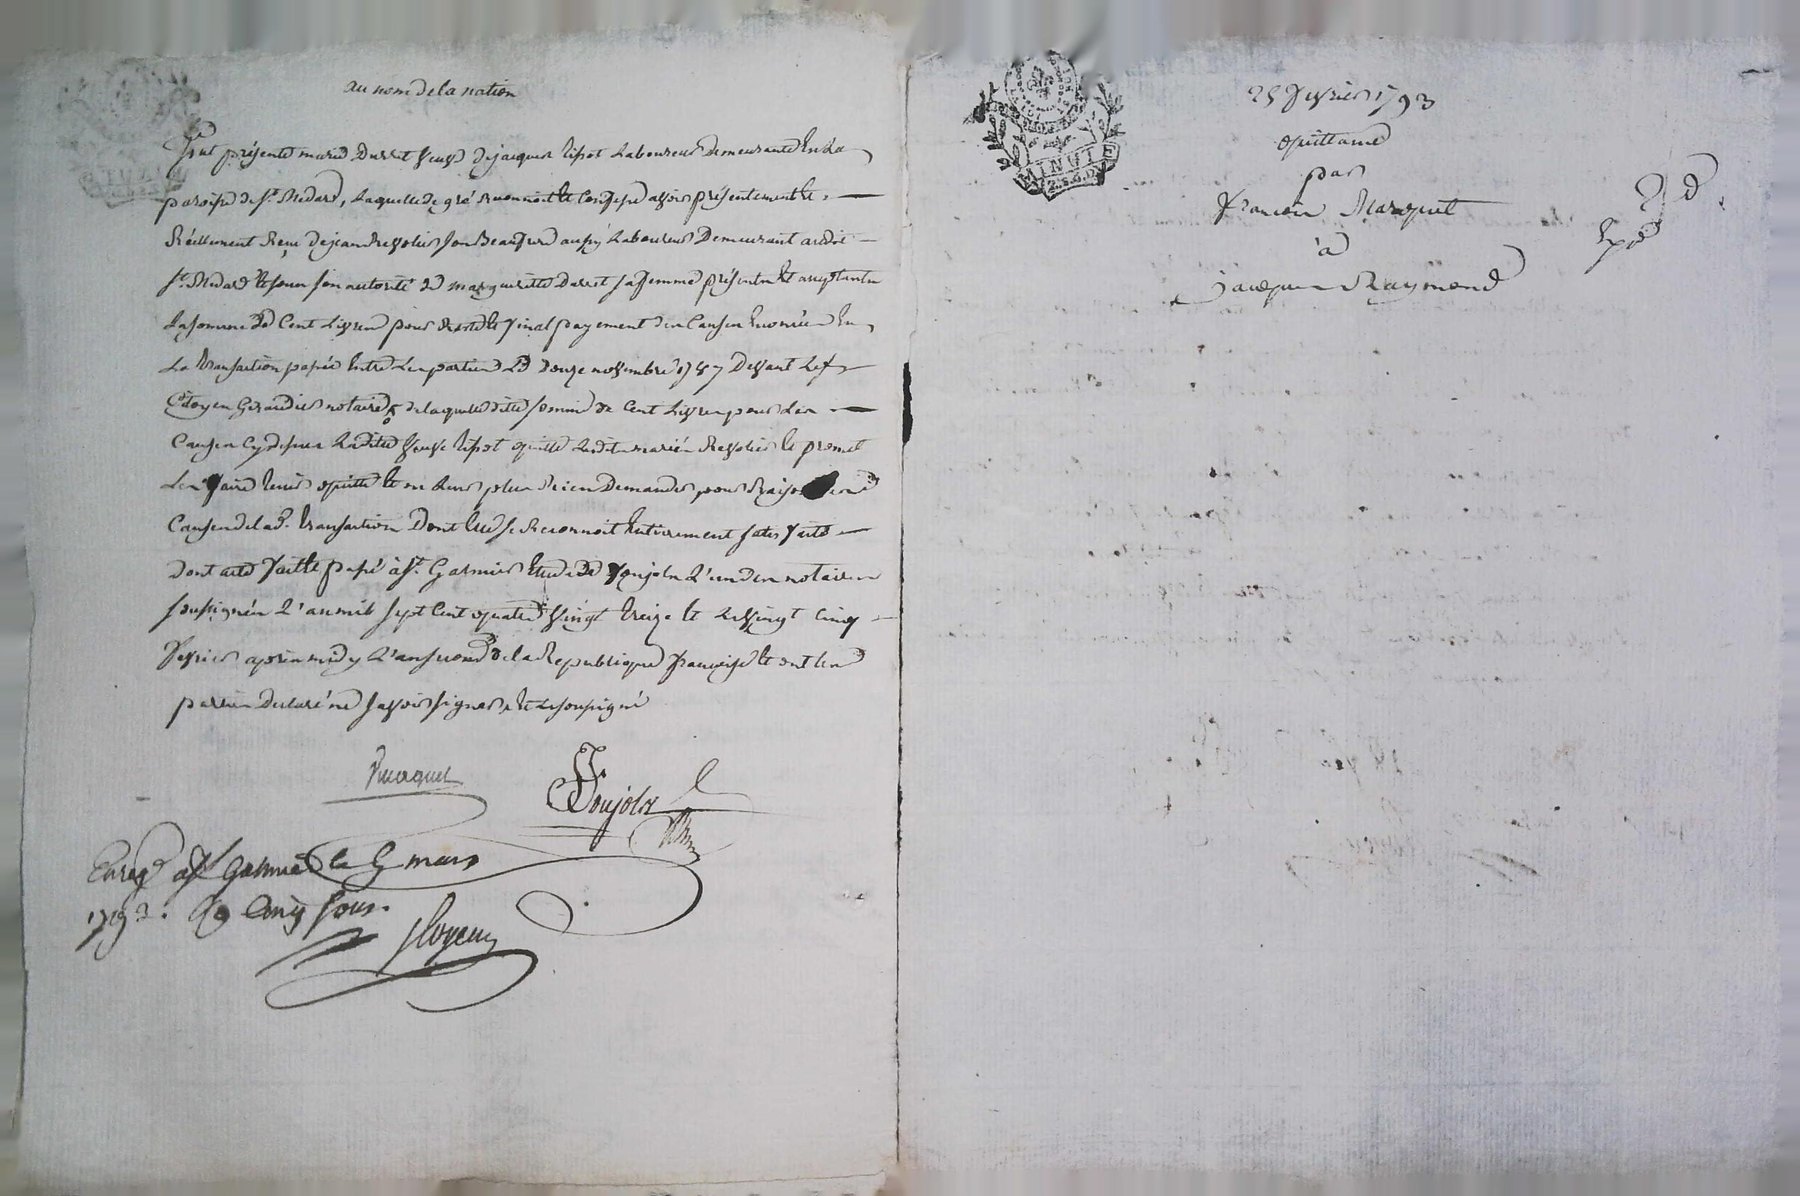 au nom de la nation
fut présente marie Durret veuve de jacques tipot Laboureur Demeurante en La
paroisse de st. Medard, Laquelle de gré reconnoit et confesse avoir présentement et
Réellement Reçu de jean Revolier son Beaufrere aussy Laboureur Demeurant audit
st. Medard et sous son autorité de margueritte Durret sa femme présente et acceptante
La somme de Cent Livres pour reste et final payement des Causes enoncées en
La transaction passée entre Les parties Le douze novembre 1787 Devant Le
Citoyen Giraudier notaire de laquelle ditte somme de Cent Livres pour Les
Causes cydessus Laditte veuve tipot quitte Lesdits mariés Revolier et promet
Les faire tenir quitte et ne Leur plus Rien Demander pour Raison des
Causes de lad. transaction Dont elle se Reconnoit entierement satisfaite
Dont acte fait et passé à st. Galmier etude de Poujols L'un des notaires
soussignés L'an mil sept cent quatre vingt treize et Le vingt cinq
fevrier après midy L'an second de la Republique françoise et ont les
parties Declaré ne savoir signer, et Le soussigné
Poujols
Enreg. a st Galmier le 5 mars
1793. R cinq sous.
MINUTE
25 fevrier 1793
quittance
par
françois Maraquet
à
jacques Raymond
Expd